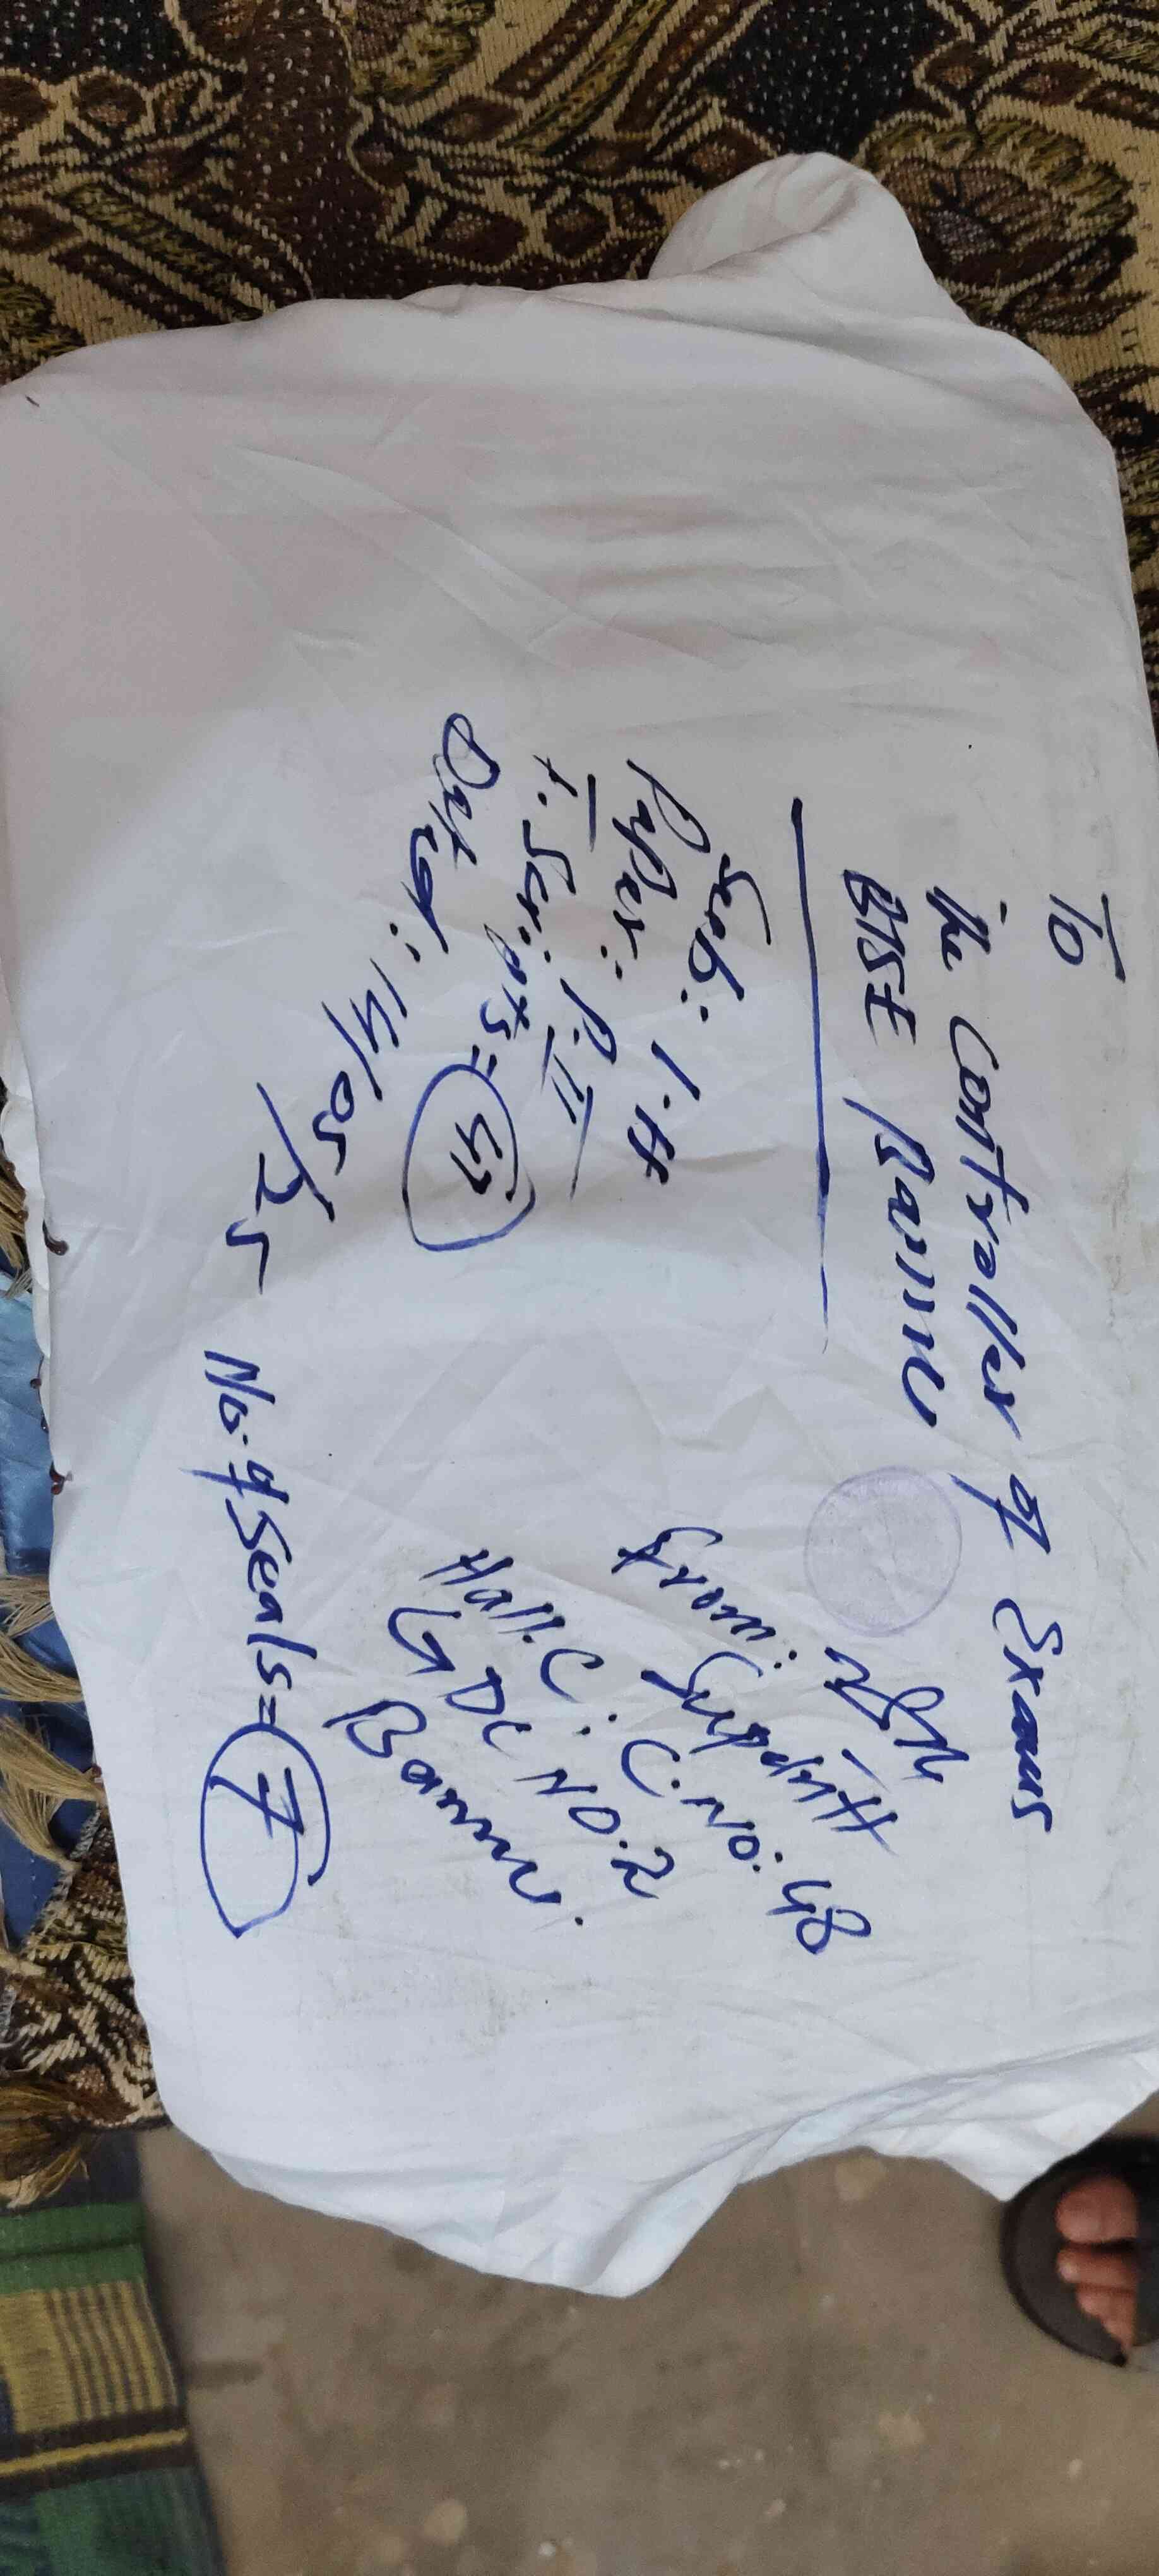 To
The Controller of Exams
BISE Bannu
Sub: I.H
Paper: P.II
T. Scripts = 47
Dated: 14/05/25
From: Supdtt
Hall: C.C.No: 48
GDC NO.2
Bannu.
No. of Seals = 7